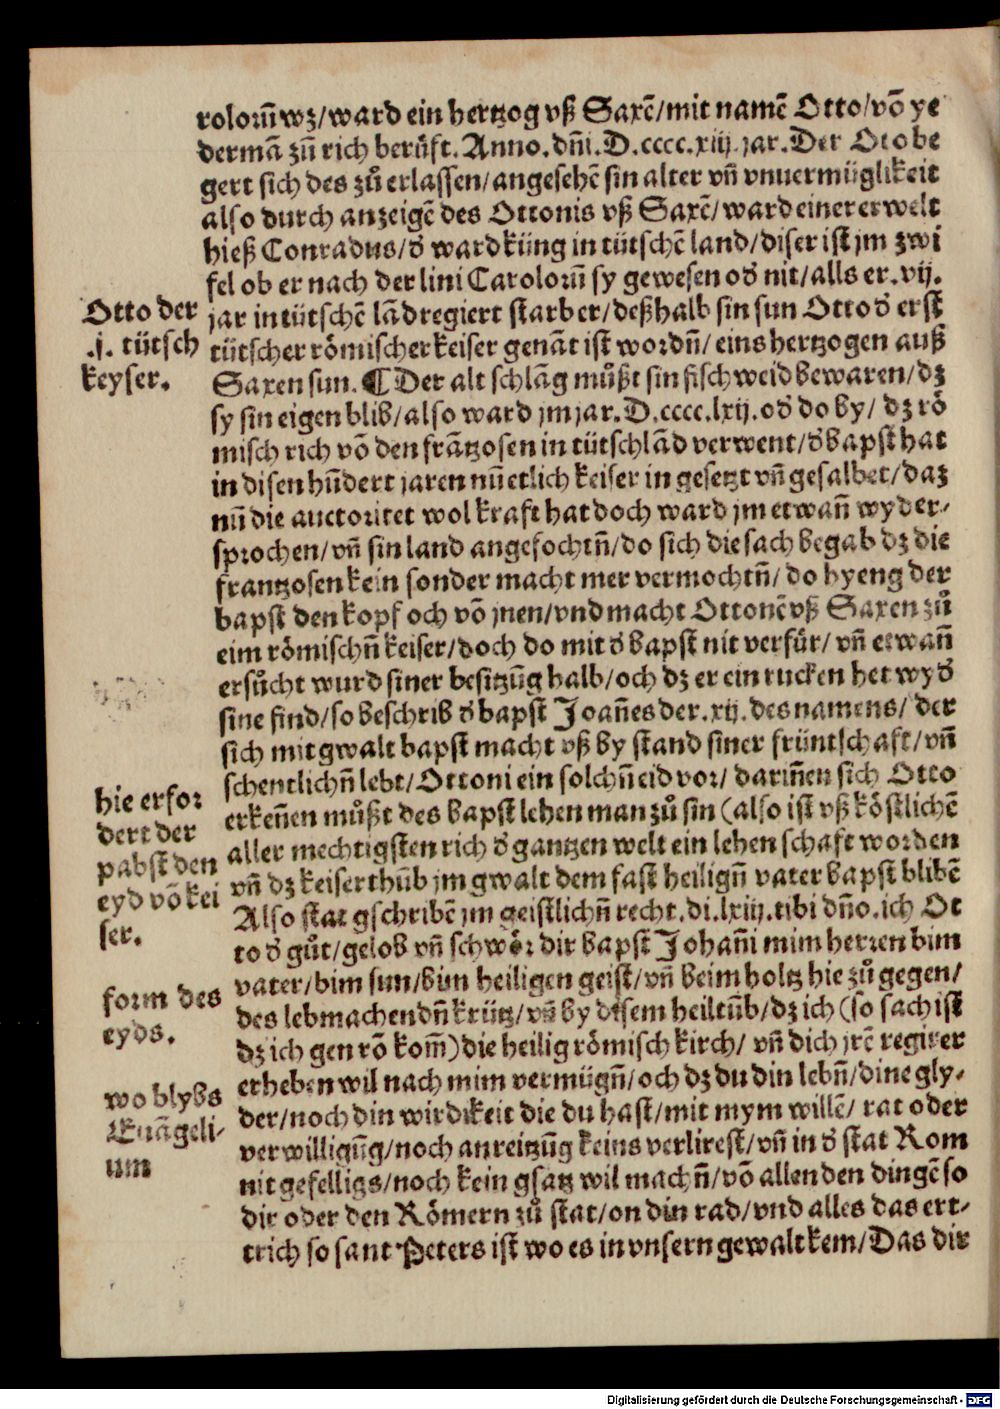 rolorum̄ wz/ward ein hertzog vß Saxē/mit namē Otto/vō ye
dermā zū rich berüft. Anno. dn̄i. D.cccc.xiij. jar. Der Oto be
gert sich des zů erlassen/angesehē sin alter vn̄ vnuermüglikeit
also durch anzeigē des Ottonis vß Saxē/ward einer erwelt
hieß Conradus/ď ward küng in tütschē land/diser ist jm zwi
fel ob er nach der lini Carolorum̄ sy gewesen oď nit/alls er.vij.
jar in tütschē lād regiert starb er/deßhalb sin sun Otto ď erst
tütscher römischer keiser genāt ist wordn̄/eins hertzogen auß
Saxen sun. ¶ Der alt schlāg můßt sin fisch weid bewaren/dz
sy sin eigen blib/also ward jm jar. D.cccc.lxij. oď do by/ dz rö
misch rich vō den frātzosen in tütschlād verwent/ď bapst hat
in disen hūdert jaren nū etlich keiser in gesetzt vn̄ gesalbet/daz
nū die auctoritet wol kraft hat doch ward jm etwan̄ wyder-
sprochen/vn̄ sin land angefochtn̄/do sich die sach begab dz die
frantzosen kein sonder macht mer vermochtn̄/do hyeng der
bapst den kopf och vō jnen/vnd macht Ottonē vß Saxen zů
eim römischn̄ keiser/doch do mit ď bapst nit verfür/ vn̄ etwan̄
ersůcht wurd siner besitzūg halb/och dz er ein rucken het wyď
sine find/so beschrib ď bapst Joan̄es der.xij. des namens/ der
sich mit gwalt bapst macht vß by stand siner früntschaft/vn̄
schentlichn̄ lebt/Ottoni ein solchn̄ eid vor/ darin̄en sich Otto
erken̄en můßt des bapst lehen man zů sin (also ist vß köstlichē
aller mechtigsten rich ď gantzen welt ein lehen schaft worden
vn̄ dz keiserthūb jm gwalt dem fast heilign̄ vater bapst blibē
Also stat gschribē jm geistlichn̄ recht.di.lxiij.tibi dn̄o.ich Ot
to ď gůt/gelob vn̄ schwör dir bapst Johan̄i mim herren bim
vater/bim sun/bim heiligen geist/vn̄ beim holtz hie zů gegen/
des lebmachendn̄ krütz/vn̄ by disem heiltūb/dz ich (so sach ist
dz ich gen rō kom̄)die heilig römisch kirch/ vn̄ dich jrē regirer
erheben wil nach mim vermügn̄/och dz du din lebn̄/dine gly-
der/noch din wirdikeit die du hast/mit mym willē/ rat oder
verwilligūg/noch anreitzūg keins verlirest/vn̄ in ď stat Rom
nit gefelligs/noch kein gsatz wil mach n̄/vō allen den dingē so
dir oder den Römern zů stat/on din rad/vnd alles das ert-
trich so sant Peters ist wo es in vnsern gewalt kem/Das dir
Otto der
.j. tütsch
keyser.
hie erfor
dert der
pabst den
eyd vō kei
ser.
form des
eyds.
wo blybs
Euāgeli-
um
Digitalisierung gefördert durch die Deutsche Forschungsgemeinschaft - DFG